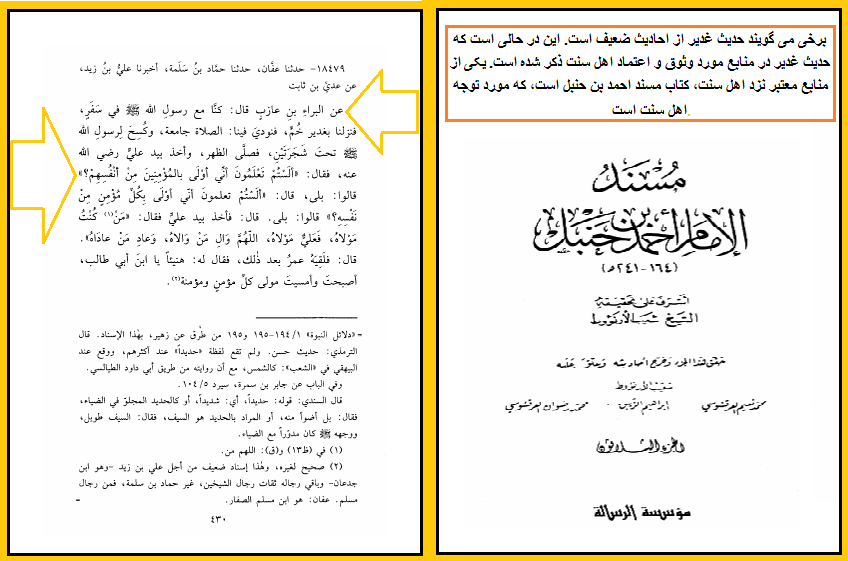 برخی می گویند حدیث غدیر از احادیث ضعیف است. این در حالی است که
حدیث غدیر در منابع مورد وثوق و اعتماد اهل سنت ذکر شده است. یکی از
منابع معتبر نزد اهل سنت، کتاب مسند احمد بن حنبل است، که مورد توجه
اهل سنت است.
مُسْنَدُ
الإمَامِ أحْمَدَ بْنِ حَنْبَل
(١٦٤-٢٤١ه)
أشرف على تحقيقه
الشيخ شعيب الأرنؤوط
حقق هذا الجزء وخرج أحاديثه وعلق عليه
شعيب الأرنؤوط
محمد نعيم العرقسوسي إبراهيم الزيبق - محمد رضوان العرقسوسي
الجزء الثلاثون
مؤسسة الرسالة
١٨٤٧٩- حدثنا عفَّان، حدثنا حمَّاد بنُ سَلَمة، أخبرنا عليُّ بنُ زيد،
عن عديِّ بن ثابت
عن البراءِ بنِ عازبٍ قال: كنَّا مع رسولِ الله ﷺ في سَفَرٍ،
فنزلنا بغدير خُمٍّ، فنوديَ فينا: الصلاة جامعة، وكُسِحَ لِرسولِ الله
ﷺ تحتَ شَجَرَتَيْنِ، فصلَّى الظهر، وأخذ بيد عليٍّ رضي الله
عنه، فقال: «أَلَسْتُمْ تَعْلَمُونَ أَنِّي أَوْلَى بالمُؤْمِنِينَ مِنْ أَنْفُسِهِمْ؟»
قالوا: بلى، قال: «أَلَسْتُمْ تعلمونَ أنِّي أوْلَى بِكُلِّ مُؤْمِنٍ مِنْ
نَفْسِهِ؟» قالوا: بلى. قال: فأخذ بيد عليٍّ فقال: «مَنْ(١) كُنْتُ
مَوْلاهُ، فَعَلِيٌّ مَوْلاهُ، اللّهُمَّ وَالِ مَنْ وَالاهُ، وَعادِ مَنْ عادَاهُ».
قال: فلَقِيَهُ عمرُ بعد ذلك، فقال له: هنيئاً يا ابنَ أبي طالب،
أصبحتَ وأمسيتَ مولى كلِّ مؤمنٍ ومؤمنة(٢).
= «دلائل النبوة» ١٩٤/١-١٩٥ و١٩٥ من طُرق عن زهير، بهذا الإسناد. قال
الترمذي: حديث حسن. ولم تقع لفظة «حديداً» عند أكثرهم، ووقع عند
البيهقي في «الشعب»: كالشمس، مع أن روايته من طريق أبي داود الطيالسي.
وفي الباب عن جابر بن سمرة، سيرد ١٠٤/٥.
قال السندي: قوله: حديداً، أي: شديداً، أو كالحديد المجلوّ في الضياء،
فقال: بل أضوأ منه، أو المراد بالحديد هو السيف، فقال: السيف طويل،
ووجهه ﷺ كان مدوَّراً مع الضياء.
(١) في (ظ١٣) و(ق): اللهم من.
(٢) صحيح لغيره، وهذا إسناد ضعيف من أجل علي بن زيد -وهو ابن
جدعان- وباقي رجاله ثقات رجال الشيخين، غير حماد بن سلمة، فمن رجال
مسلم. عفان: هو ابن مسلم الصفار. =
٤٣٠